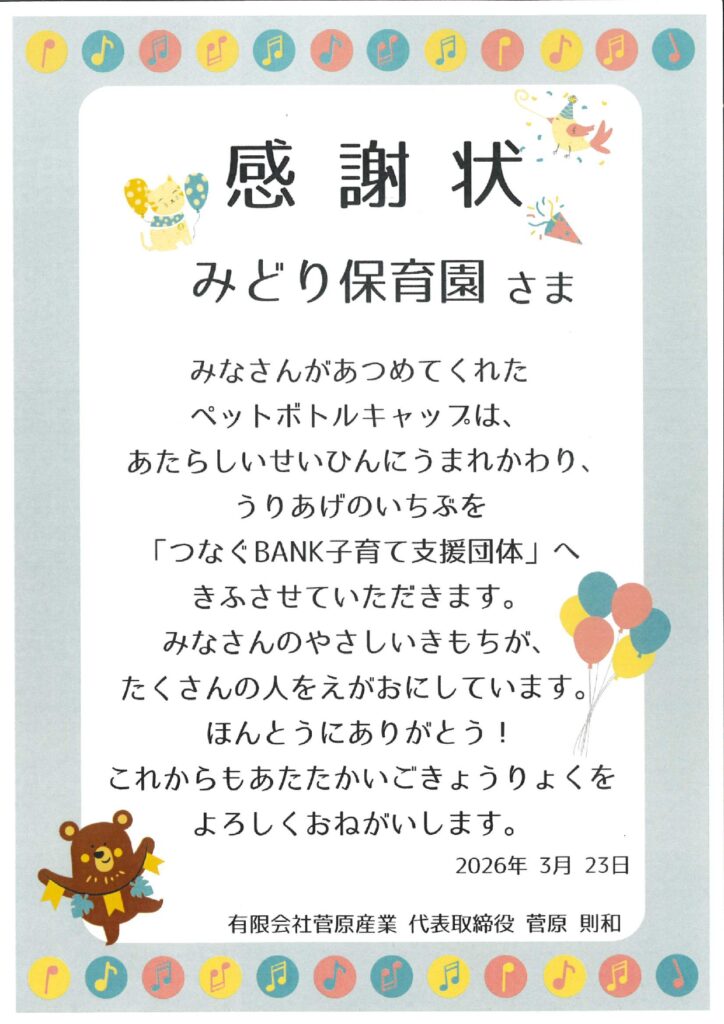 感謝状
みどり保育園 さま
みなさんがあつめてくれた
ペットボトルキャップは、
あたらしいせいひんにうまれかわり、
うりあげのいちぶを
「つなぐBANK子育て支援団体」へ
きふさせていただきます。
みなさんのやさしいきもちが、
たくさんの人をえがおにしています。
ほんとうにありがとう!
これからもあたたかいごきょうりょくを
よろしくおねがいします。
2026年 3月 23日
有限会社菅原産業 代表取締役 菅原 則和